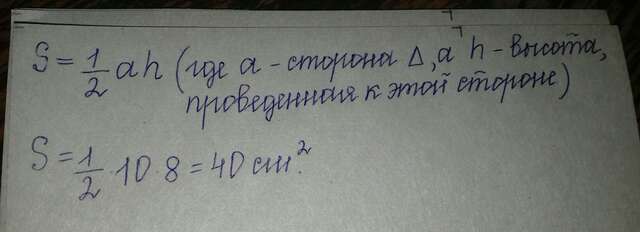 S = 1/2 ah (где a - сторона Δ, а h - высота,
проведенная к этой стороне)
S = 1/2 · 10 · 8 = 40 см².